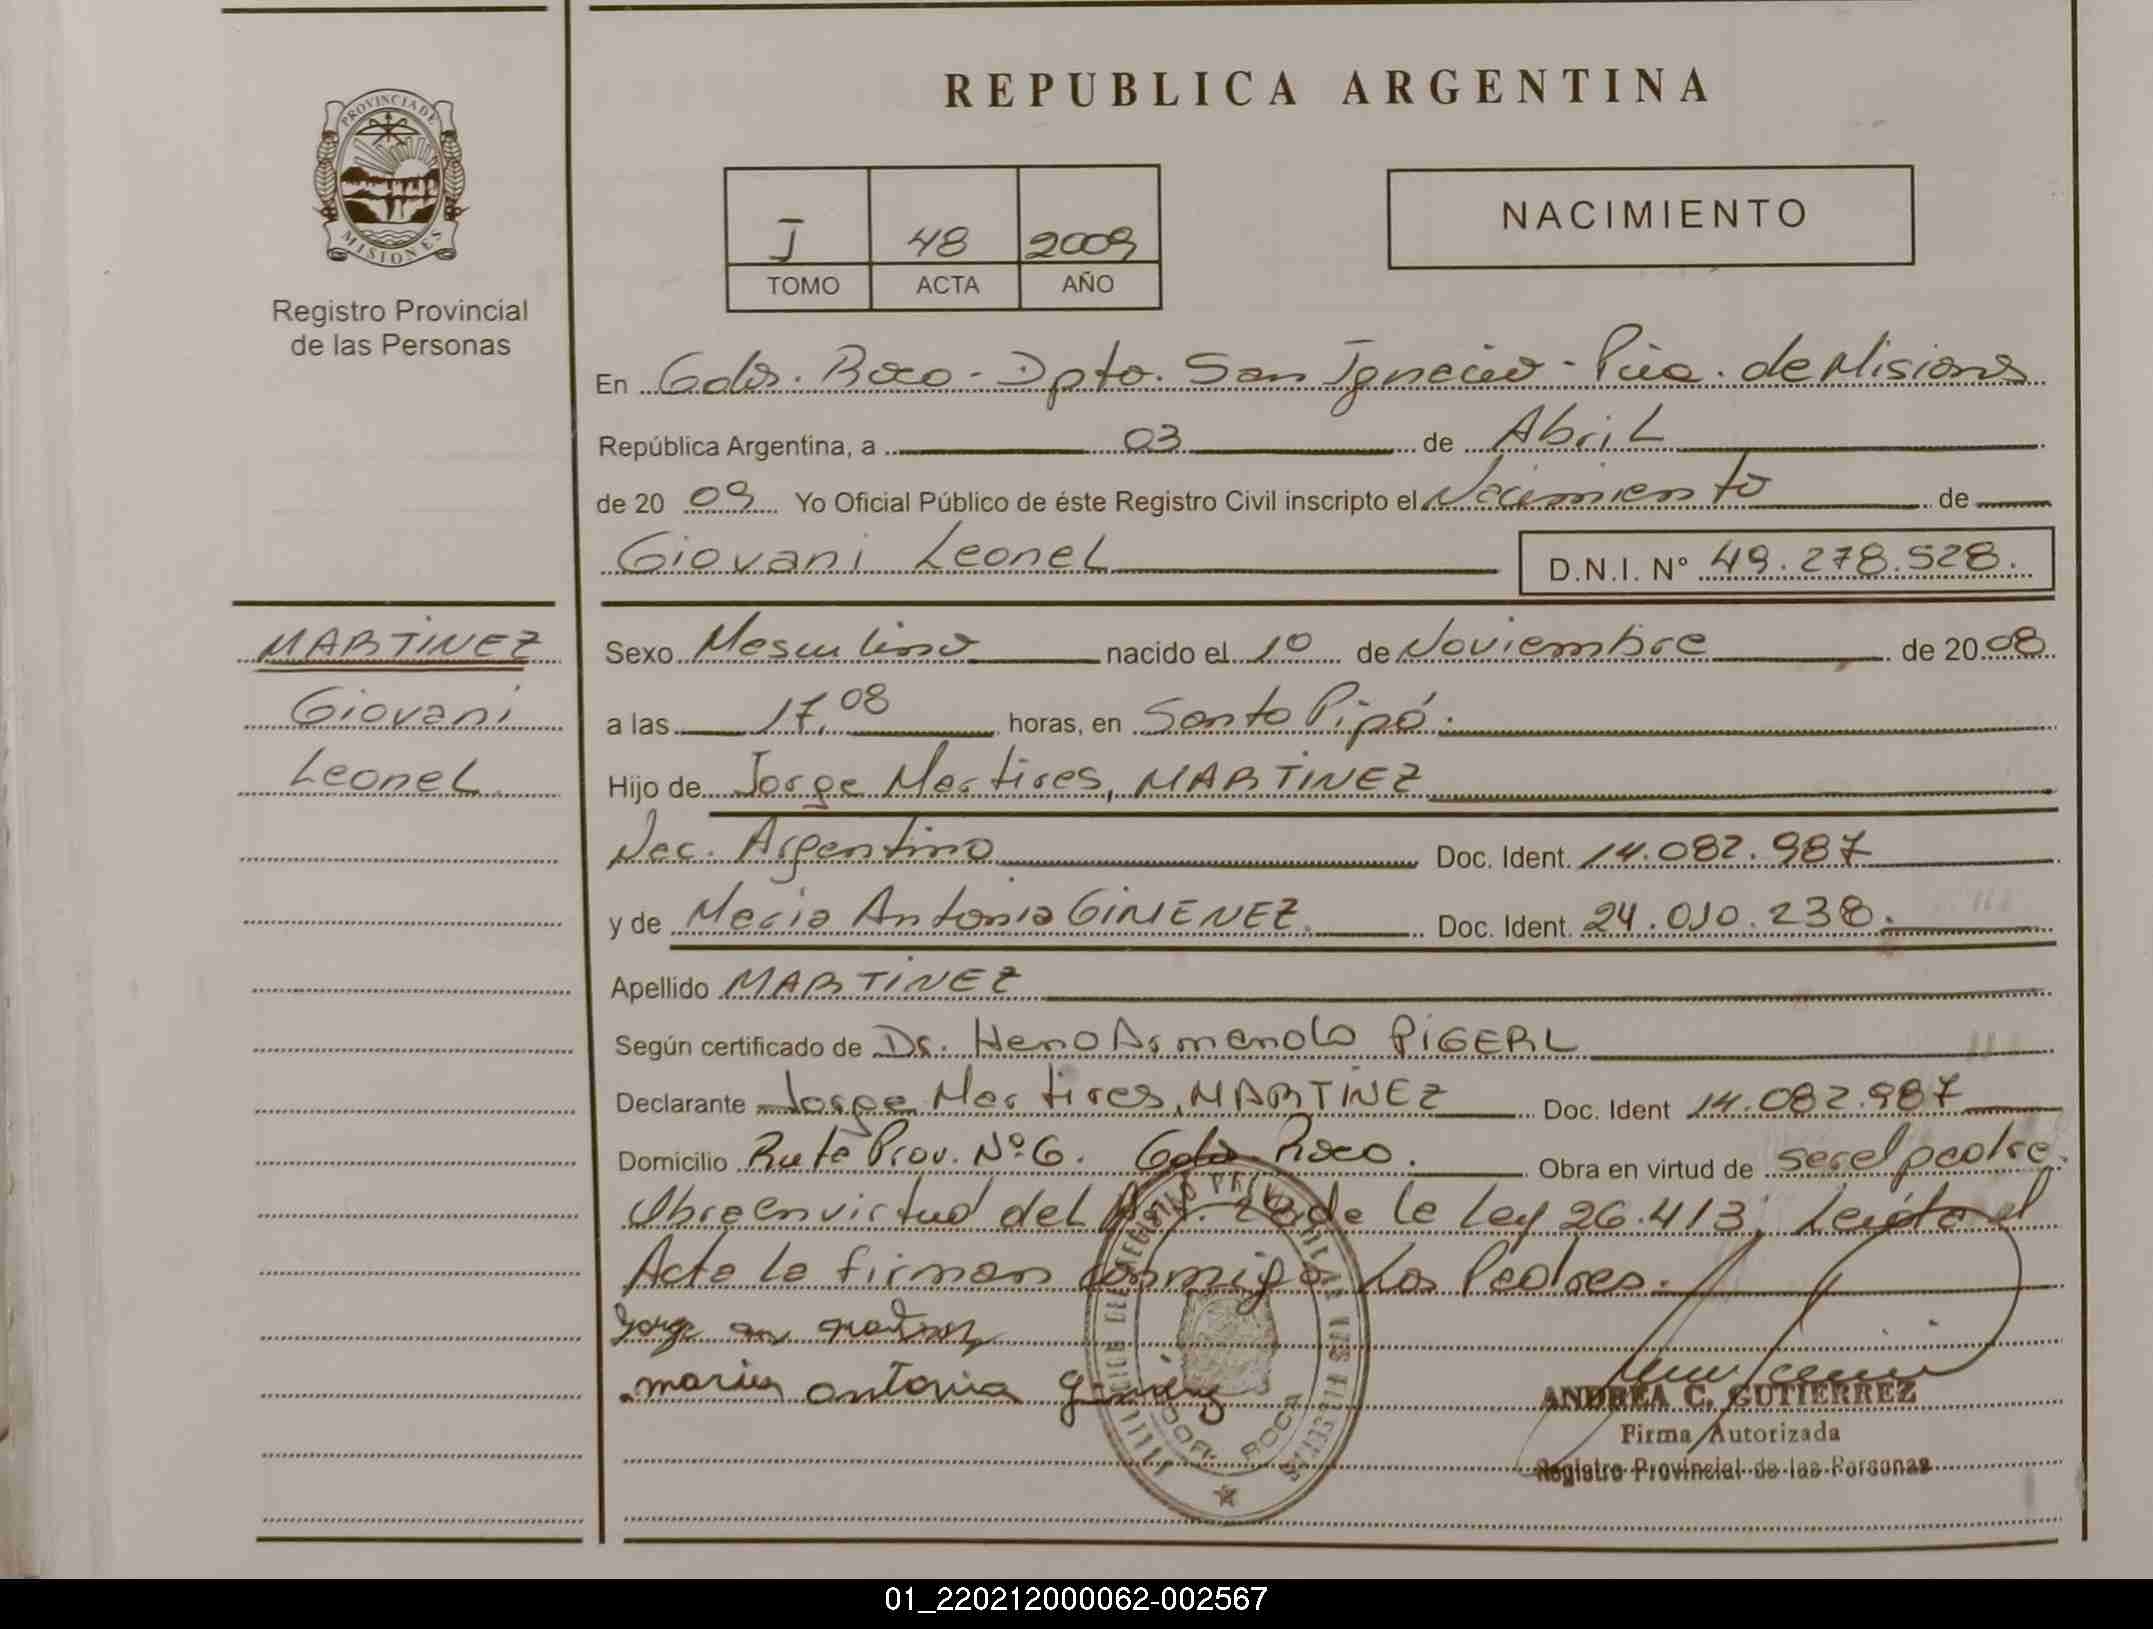 REPUBLICA ARGENTINA
PROVINCIA DE
MISIONES
Registro Provincial
de las Personas
I 48 2009
TOMO ACTA AÑO
NACIMIENTO
En Gdor. Roca - Dpto. San Ignacio - Pcia. de Misiones
República Argentina, a 03 de Abril
de 20 09 Yo Oficial Público de éste Registro Civil inscripto el Nacimiento de
Giovani Leonel D.N.I. Nº 49.278.528.
MARTINEZ
Giovani
Leonel
Sexo Masculino nacido el 10 de Noviembre de 20 08
a las 17,08 horas, en Santo Pipó.
Hijo de Jorge Martires, MARTINEZ
Nac. Argentino Doc. Ident. 14.082.987
y de Maria Antonia GIMENEZ. Doc. Ident. 24.010.238.
Apellido MARTINEZ
Según certificado de Dr. Heno Armando PIGERL
Declarante Jorge Martires, MARTINEZ Doc. Ident 14.082.987
Domicilio Ruta Prov. Nº 6. Gdor. Roca. Obra en virtud de ser el padre.
Obra en virtud del Art. de la Ley 26.413; Leida el
Acta la firman conmigo Los Padres.
Jorge martinez
maria antonia gimenez
GDOR. ROCA
ANDREA C. GUTIERREZ
Firma Autorizada
Registro Provincial de las Personas
01_220212000062-002567